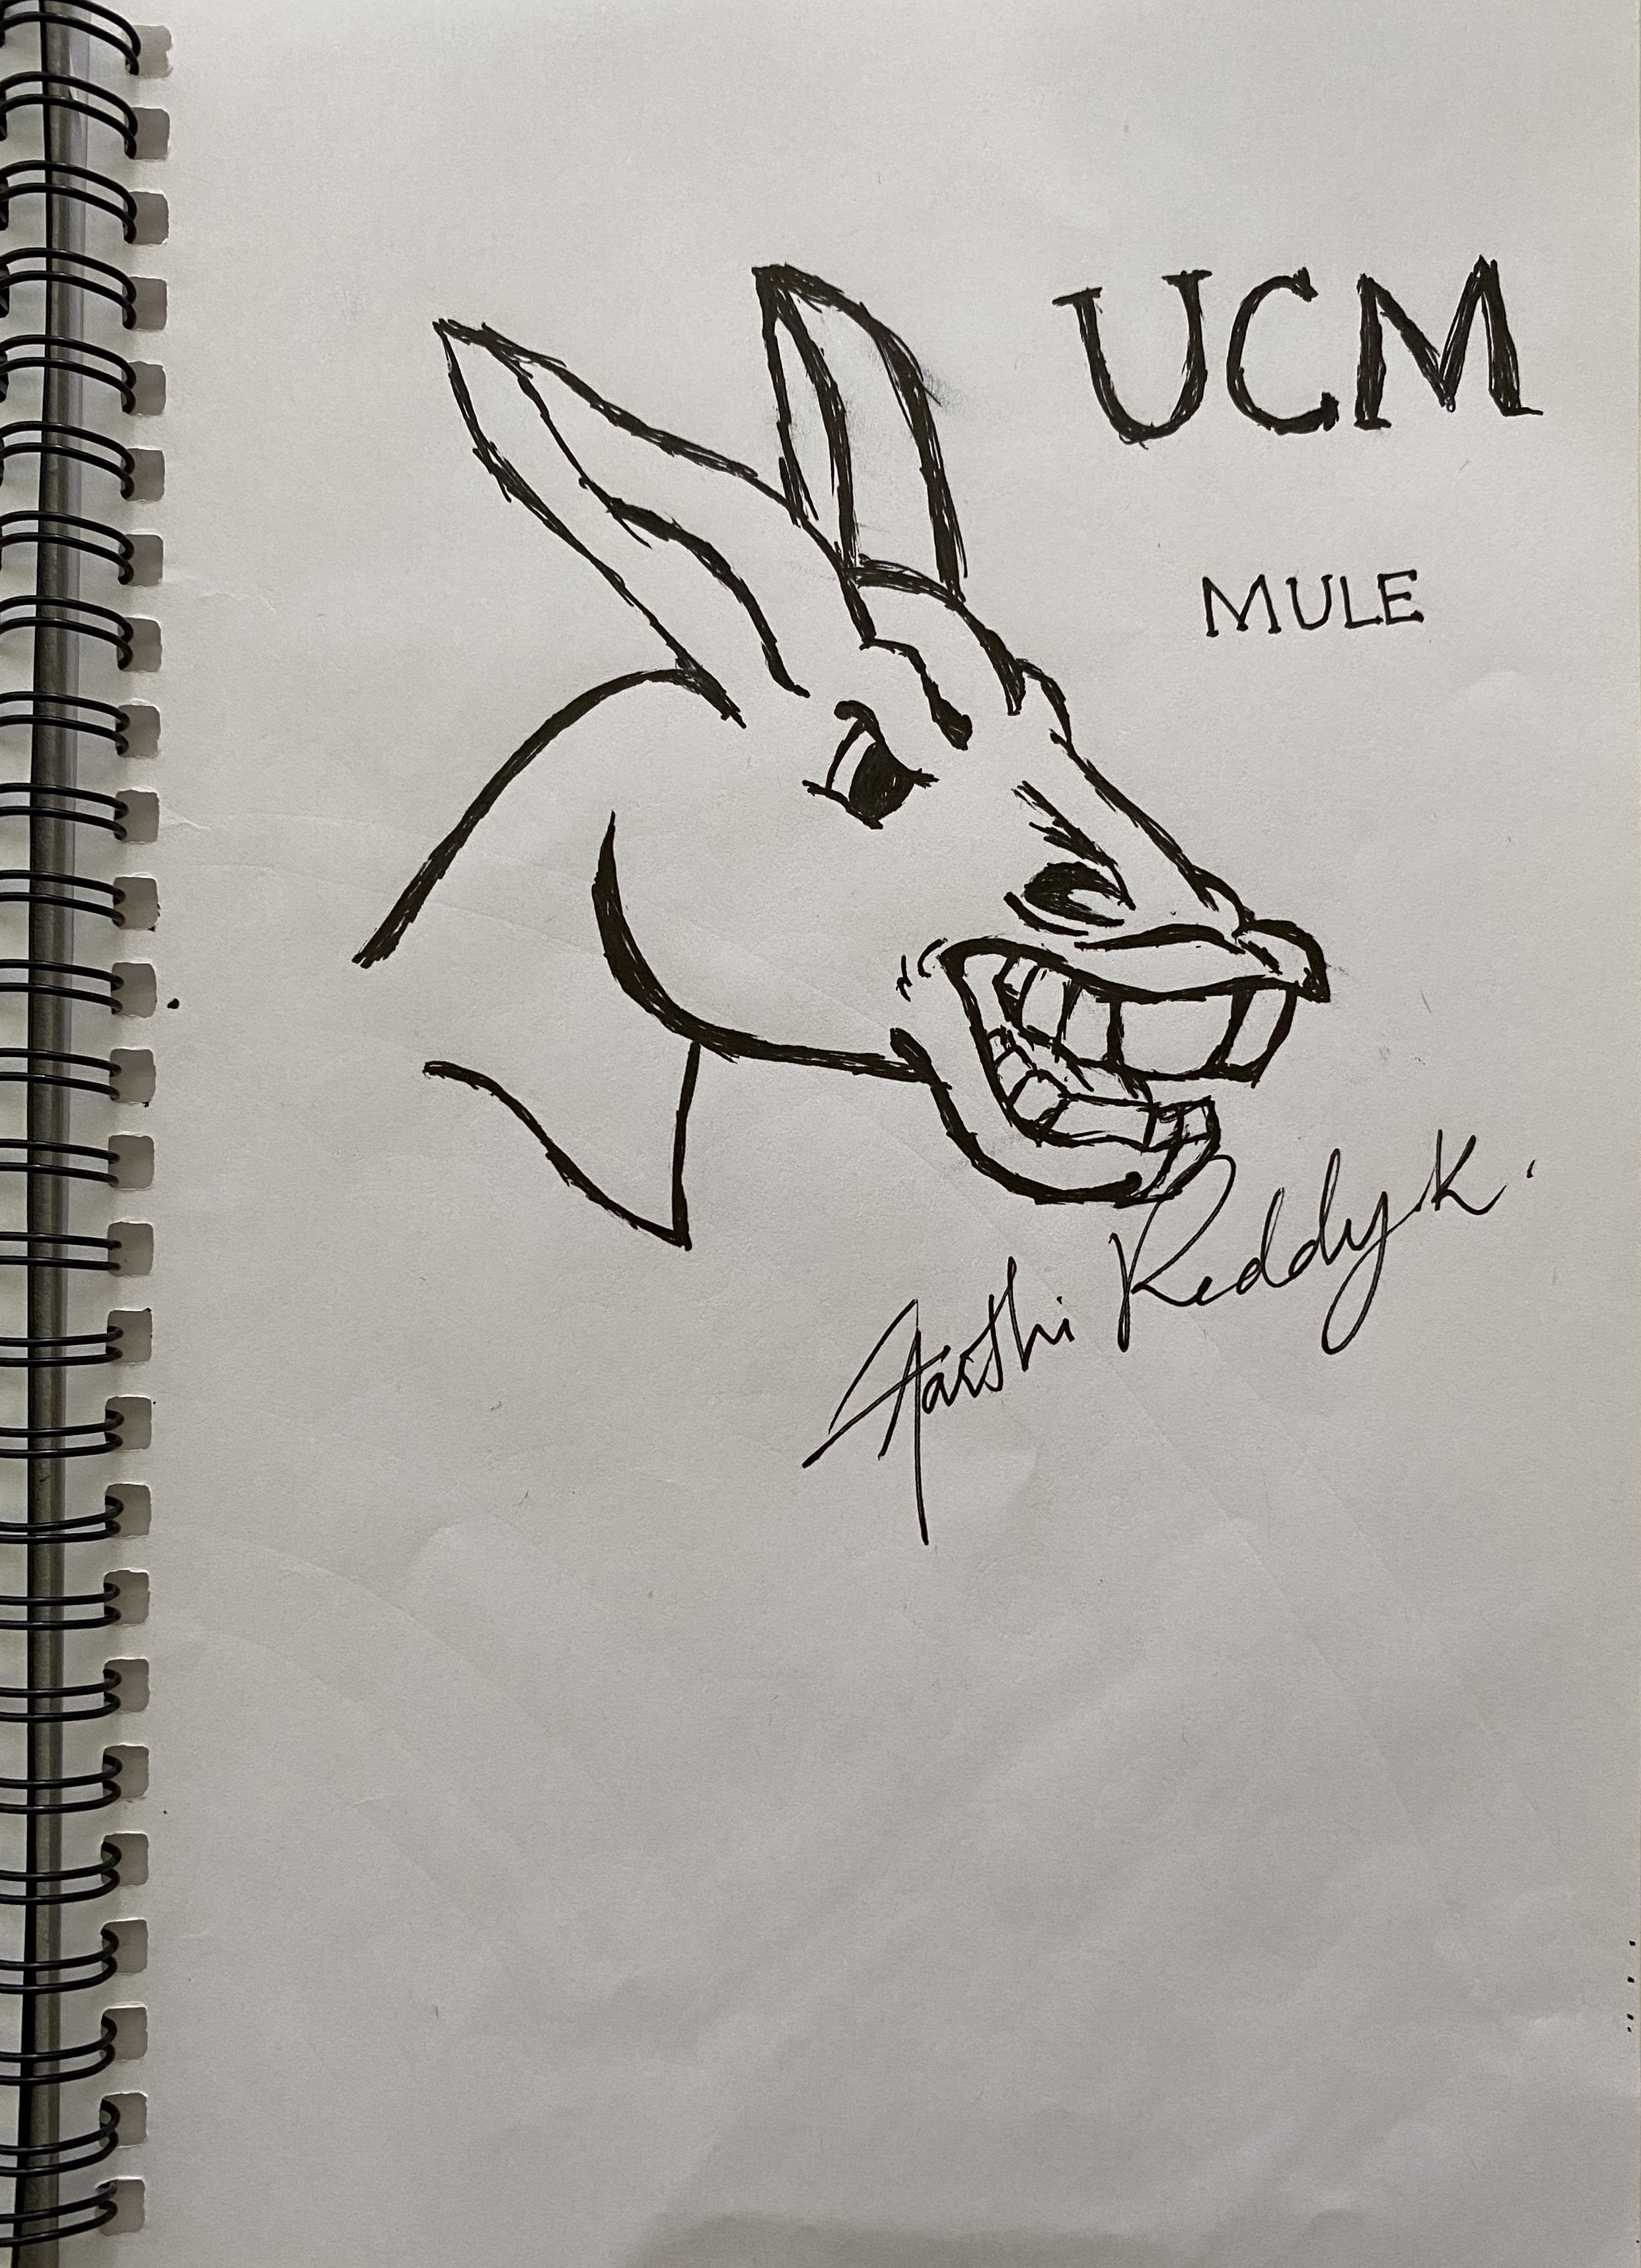 UCM
MULE
Aarthi Reddy K.